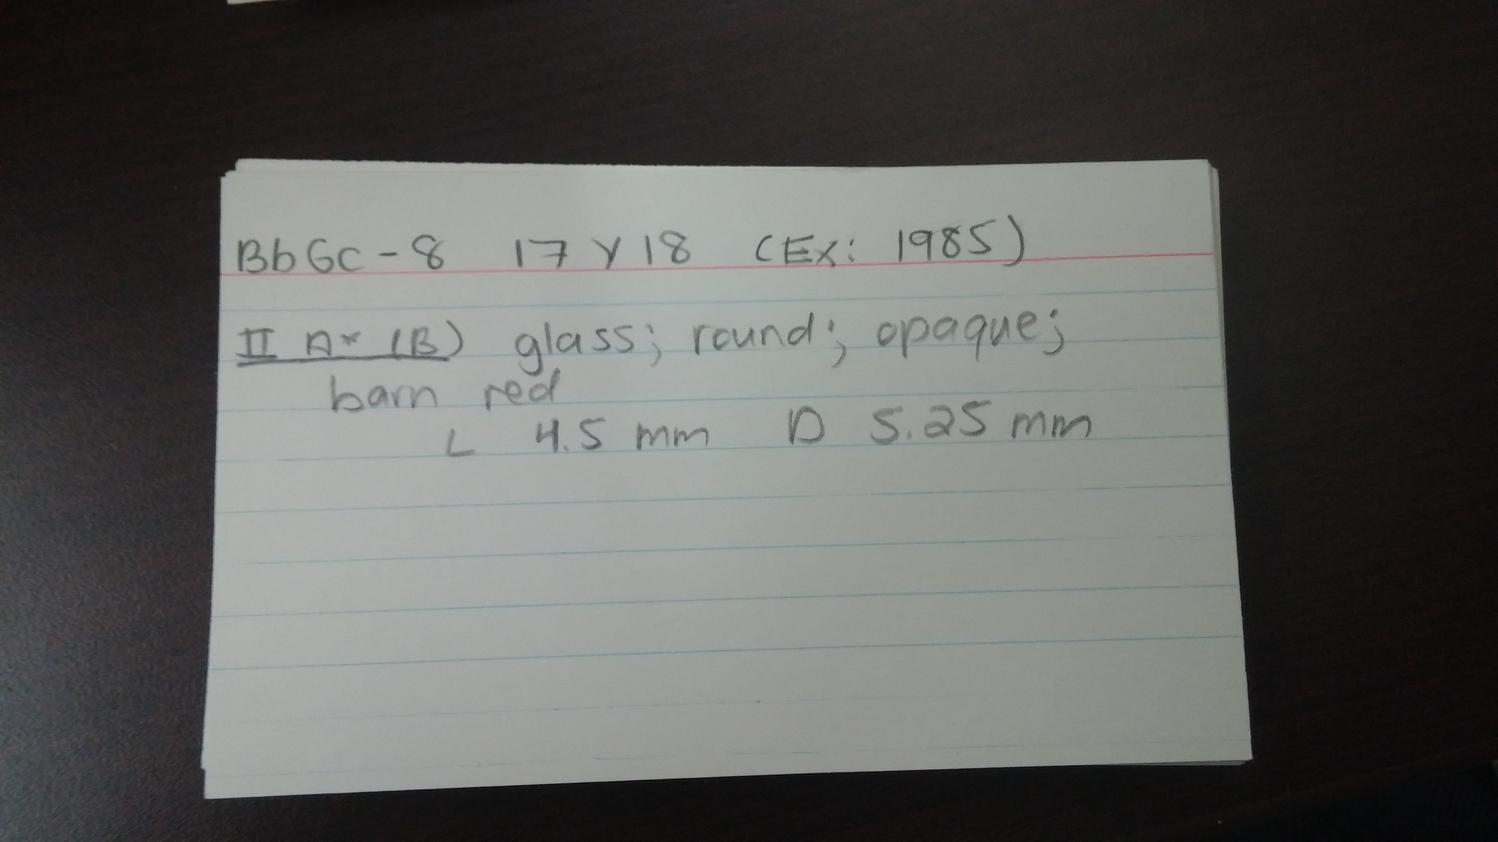 BbGc-8 17Y18 (Ex: 1985)
II A* (B) glass; round; opaque;
barn red
L 4.5 mm D 5.25 mm